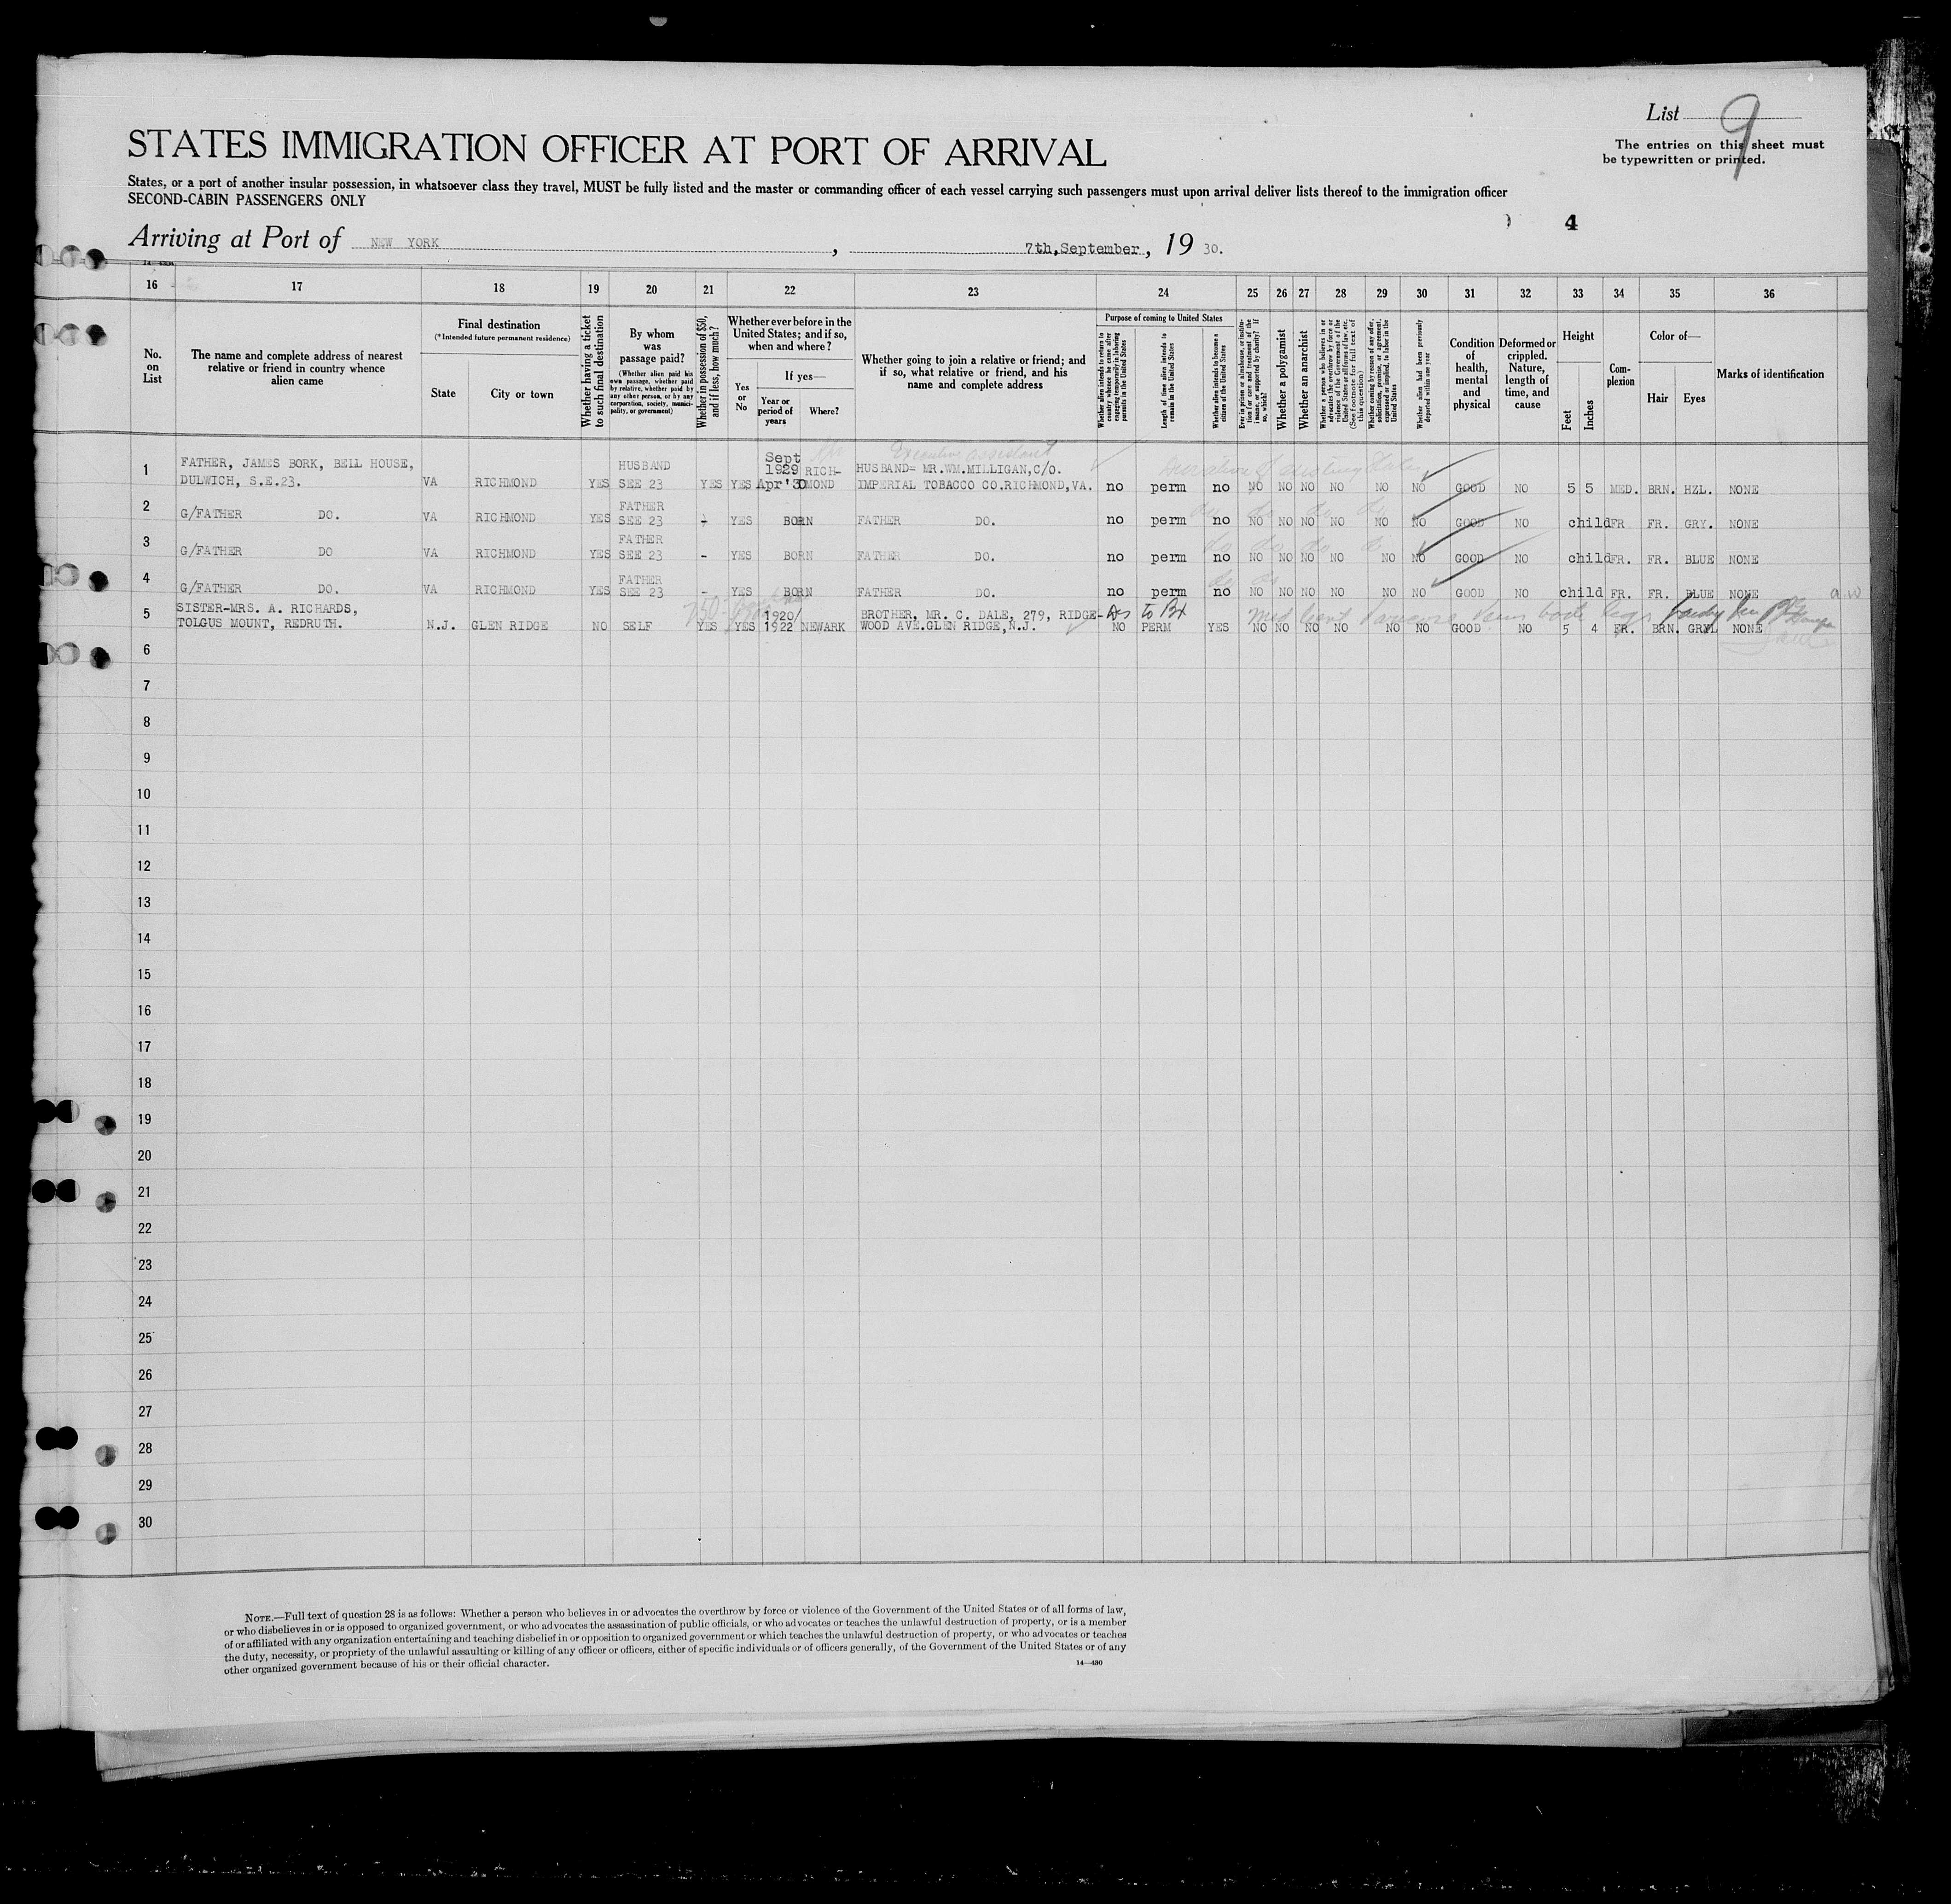 List 9
The entries on this sheet must
be typewritten or printed.
STATES IMMIGRATION OFFICER AT PORT OF ARRIVAL
States, or a port of another insular possession, in whatsoever class they travel, MUST be fully listed and the master or commanding officer of each vessel carrying such passengers must upon arrival deliver lists thereof to the immigration officer
SECOND-CABIN PASSENGERS ONLY
4
Arriving at Port of NEW YORK, 7th, September, 19 30.
16 17 18 19 20 21 22 23 24 25 26 27 28 29 30 31 32 33 34 35 36
No. on List
The name and complete address of nearest relative or friend in country whence alien came
Final destination
(*Intended future permanent residence)
State
City or town
Whether having a ticket to such final destination
By whom was passage paid?
(Whether alien paid his own passage, whether paid by relative, whether paid by any other person, or by any corporation, society, municipality, or government)
Whether in possession of $50, and if less, how much?
Whether ever before in the United States; and if so, when and where?
Yes or No
If yes—
Year or period of years
Where?
Whether going to join a relative or friend; and if so, what relative or friend, and his name and complete address
Purpose of coming to United States
Whether alien intends to return to country whence he came after engaging temporarily in laboring pursuits in the United States
Length of time alien intends to remain in the United States
Whether alien intends to become a citizen of the United States
Ever in prison or almshouse, or institution for care and treatment of the insane, or supported by charity? If so, which?
Whether a polygamist
Whether an anarchist
Whether a person who believes in or advocates the overthrow by force or violence of the Government of the United States or all forms of law, etc. (See footnote for full text of this question)
Whether coming by reason of any offer, solicitation, promise, or agreement, expressed or implied, to labor in the United States
Whether alien had been previously deported within one year
Condition of health, mental and physical
Deformed or crippled. Nature, length of time, and cause
Height
Feet
Inches
Complexion
Color of—
Hair
Eyes
Marks of identification
Executive assistant
1 FATHER, JAMES BORK, BELL HOUSE, HUSBAND Sept 1929 RICH- HUSBAND= MR.WM.MILLIGAN,C/O.
DULWICH, S.E.23. VA RICHMOND YES SEE 23 YES YES Apr'30 MOND IMPERIAL TOBACCO CO.RICHMOND,VA. no perm no NO NO NO NO NO NO GOOD NO 5 5 MED. BRN. HZL. NONE
2 G/FATHER DO. VA RICHMOND YES FATHER SEE 23 - YES BORN FATHER DO. no perm no NO NO NO NO NO NO GOOD NO child FR FR. GRY. NONE
3 G/FATHER DO VA RICHMOND YES FATHER SEE 23 - YES BORN FATHER DO. no perm no NO NO NO NO NO NO GOOD NO child FR. FR. BLUE NONE
4 G/FATHER DO. VA RICHMOND YES FATHER SEE 23 - YES BORN FATHER DO. no perm no NO NO NO NO NO NO GOOD NO child FR. FR. BLUE NONE
5 SISTER-MRS. A. RICHARDS, 1920/ BROTHER, MR. C. DALE, 279, RIDGE-
TOLGUS MOUNT, REDRUTH. N.J. GLEN RIDGE NO SELF YES YES 1922 NEWARK WOOD AVE.GLEN RIDGE,N.J. NO PERM YES NO NO NO NO NO NO GOOD NO 5 4 FR. BRN. GRY. NONE
6
7
8
9
10
11
12
13
14
15
16
17
18
19
20
21
22
23
24
25
26
27
28
29
30
NOTE.—Full text of question 28 is as follows: Whether a person who believes in or advocates the overthrow by force or violence of the Government of the United States or of all forms of law,
or who disbelieves in or is opposed to organized government, or who advocates the assassination of public officials, or who advocates or teaches the unlawful destruction of property, or is a member
of or affiliated with any organization entertaining and teaching disbelief in or opposition to organized government or which teaches the unlawful destruction of property, or who advocates or teaches
the duty, necessity, or propriety of the unlawful assaulting or killing of any officer or officers, either of specific individuals or of officers generally, of the Government of the United States or of any
other organized government because of his or their official character.
14—430